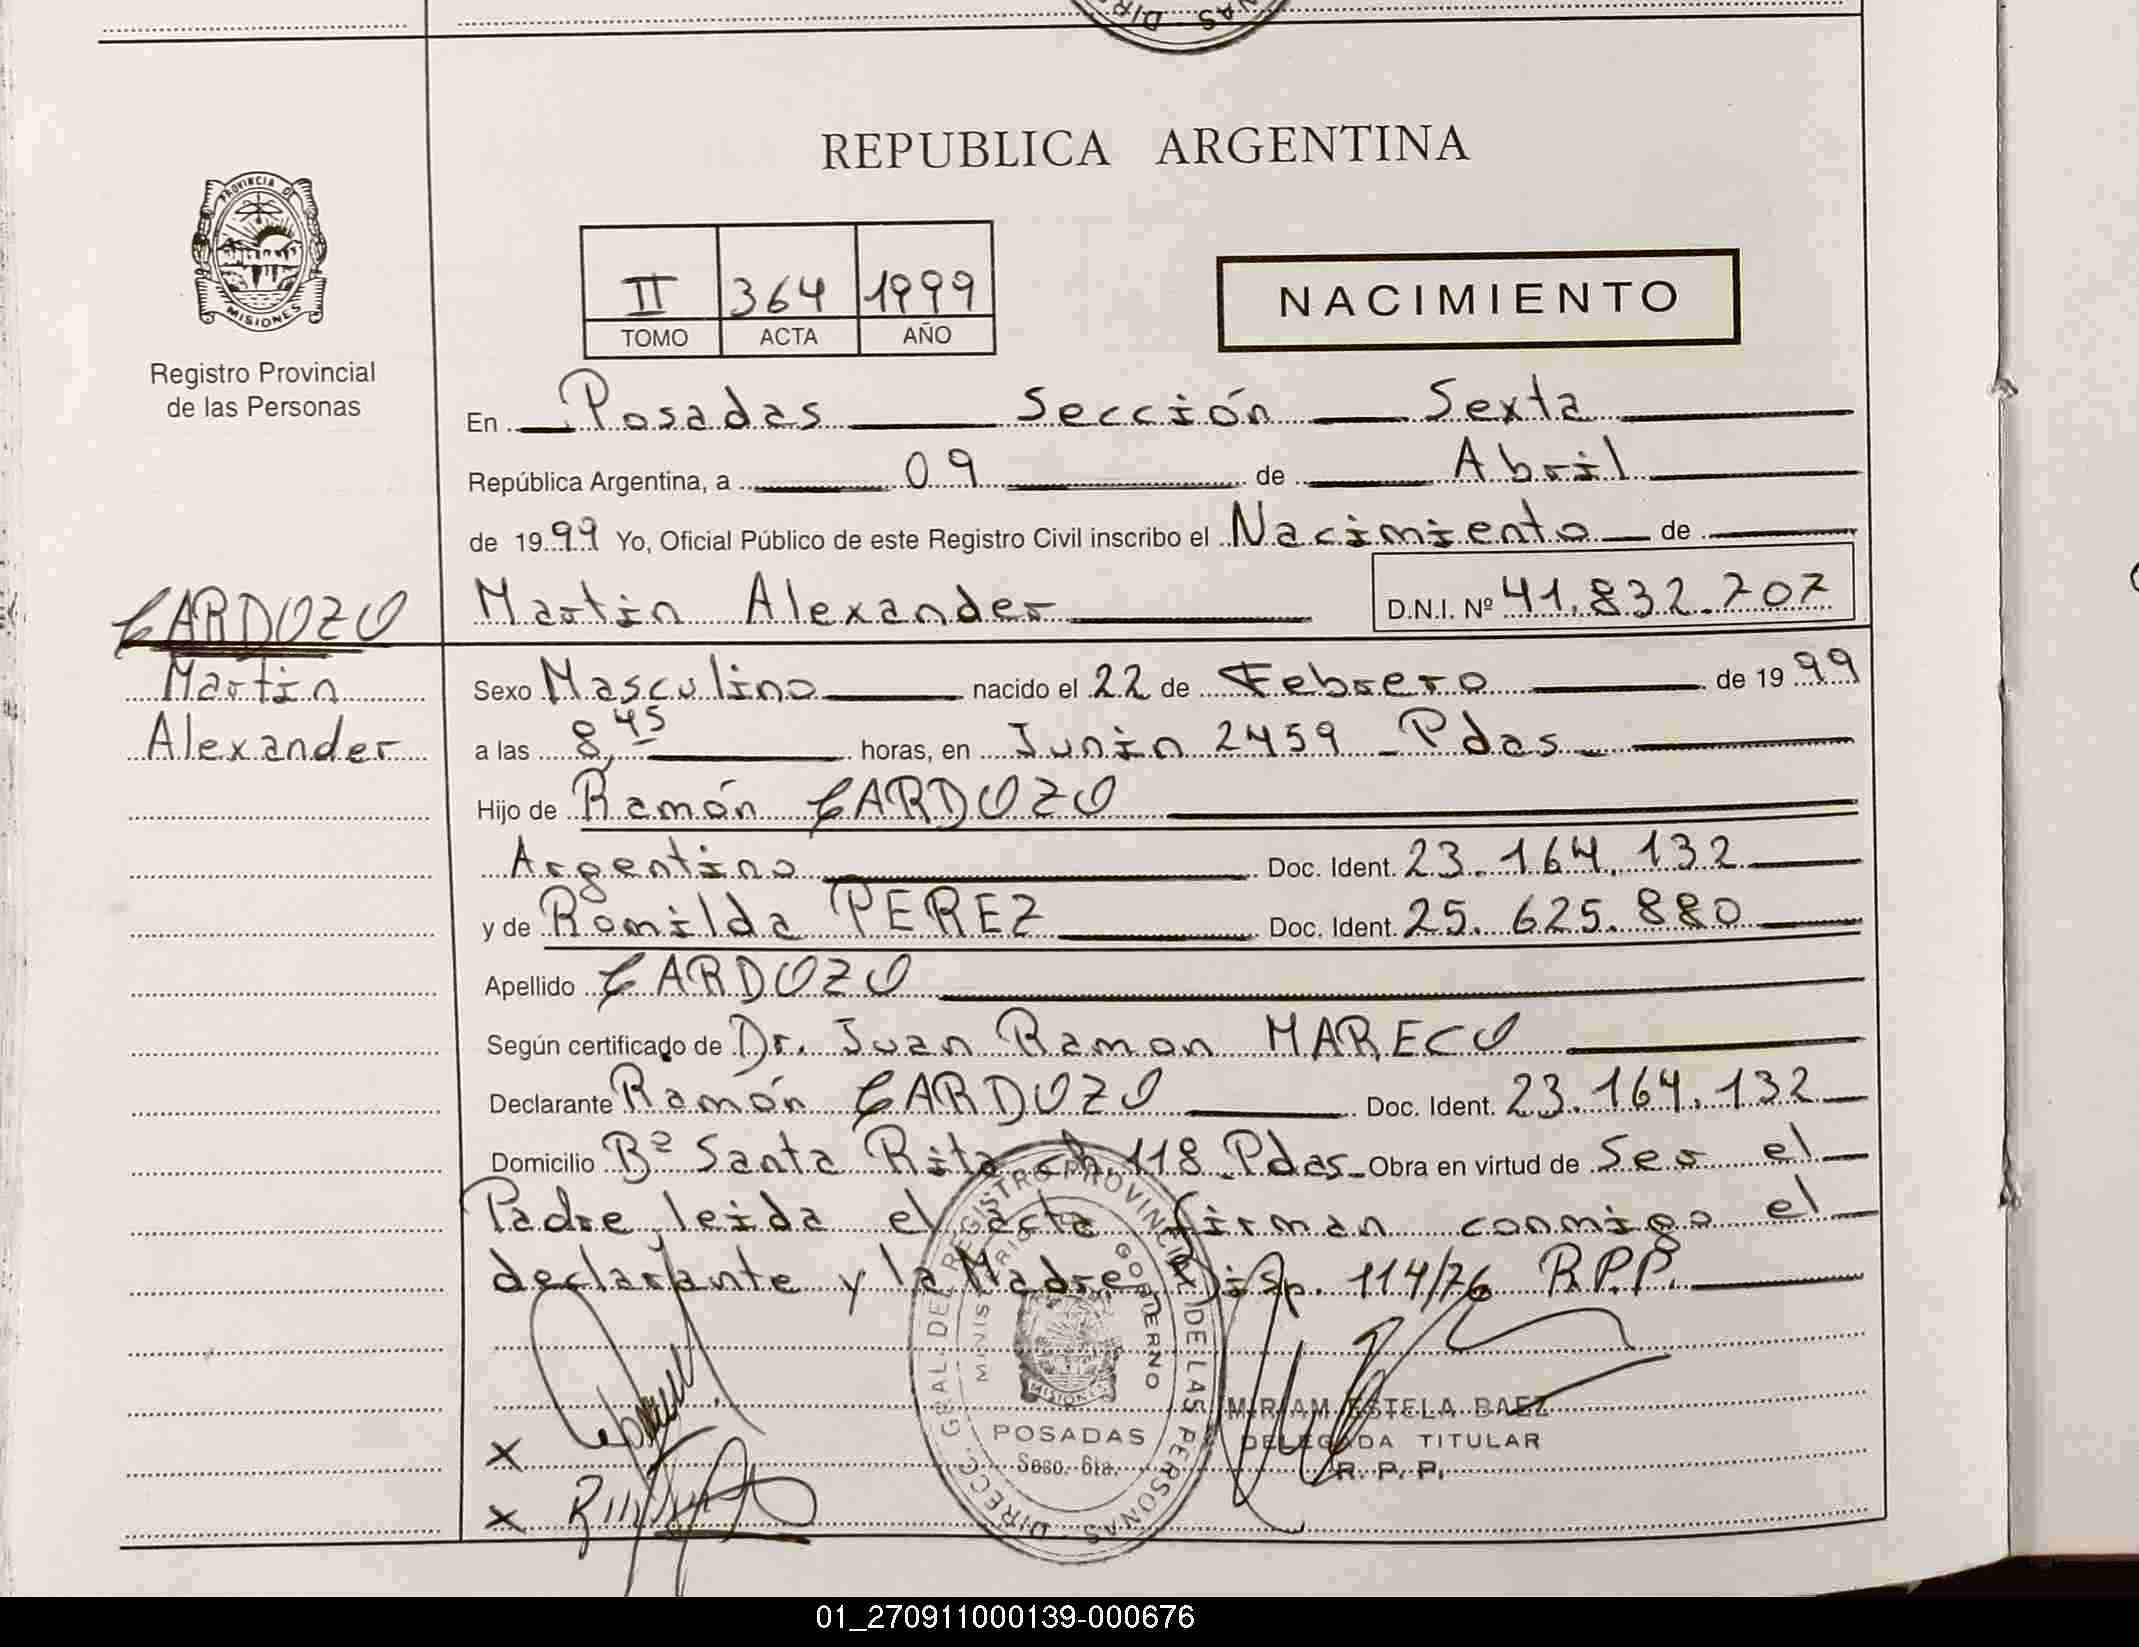 REPUBLICA ARGENTINA
PROVINCIA DE
MISIONES
Registro Provincial
de las Personas
II 364 1999
TOMO ACTA AÑO
NACIMIENTO
En Posadas Sección Sexta
República Argentina, a 09 de Abril
de 1999 Yo, Oficial Público de este Registro Civil inscribo el Nacimiento de
CARDOZO
Martin Alexander D.N.I. Nº 41.832.707
Martin
Alexander
Sexo Masculino nacido el 22 de Febrero de 1999
a las 8,45 horas, en Junin 2459 - Pdas -
Hijo de Ramón CARDOZO
Argentino Doc. Ident. 23.164.132
y de Romilda PEREZ Doc. Ident. 25.625.880
Apellido CARDOZO
Según certificado de Dr. Juan Ramon MARECO
Declarante Ramón CARDOZO Doc. Ident. 23.164.132
Domicilio Bº Santa Rita ch. 118 Pdas - Obra en virtud de Ser el
Padre, leida el acta firman conmigo el
declarante y la Madre Disp. 114/76 R.P.P.
DIRECC. GRAL. DEL REGISTRO PROVINCIAL DE LAS PERSONAS
MINISTERIO GOBIERNO
MISIONES
POSADAS
Secc. 6ta.
MIRIAM ESTELA BAEZ
DELEGADA TITULAR
R. P. P.
X
X
01_270911000139-000676